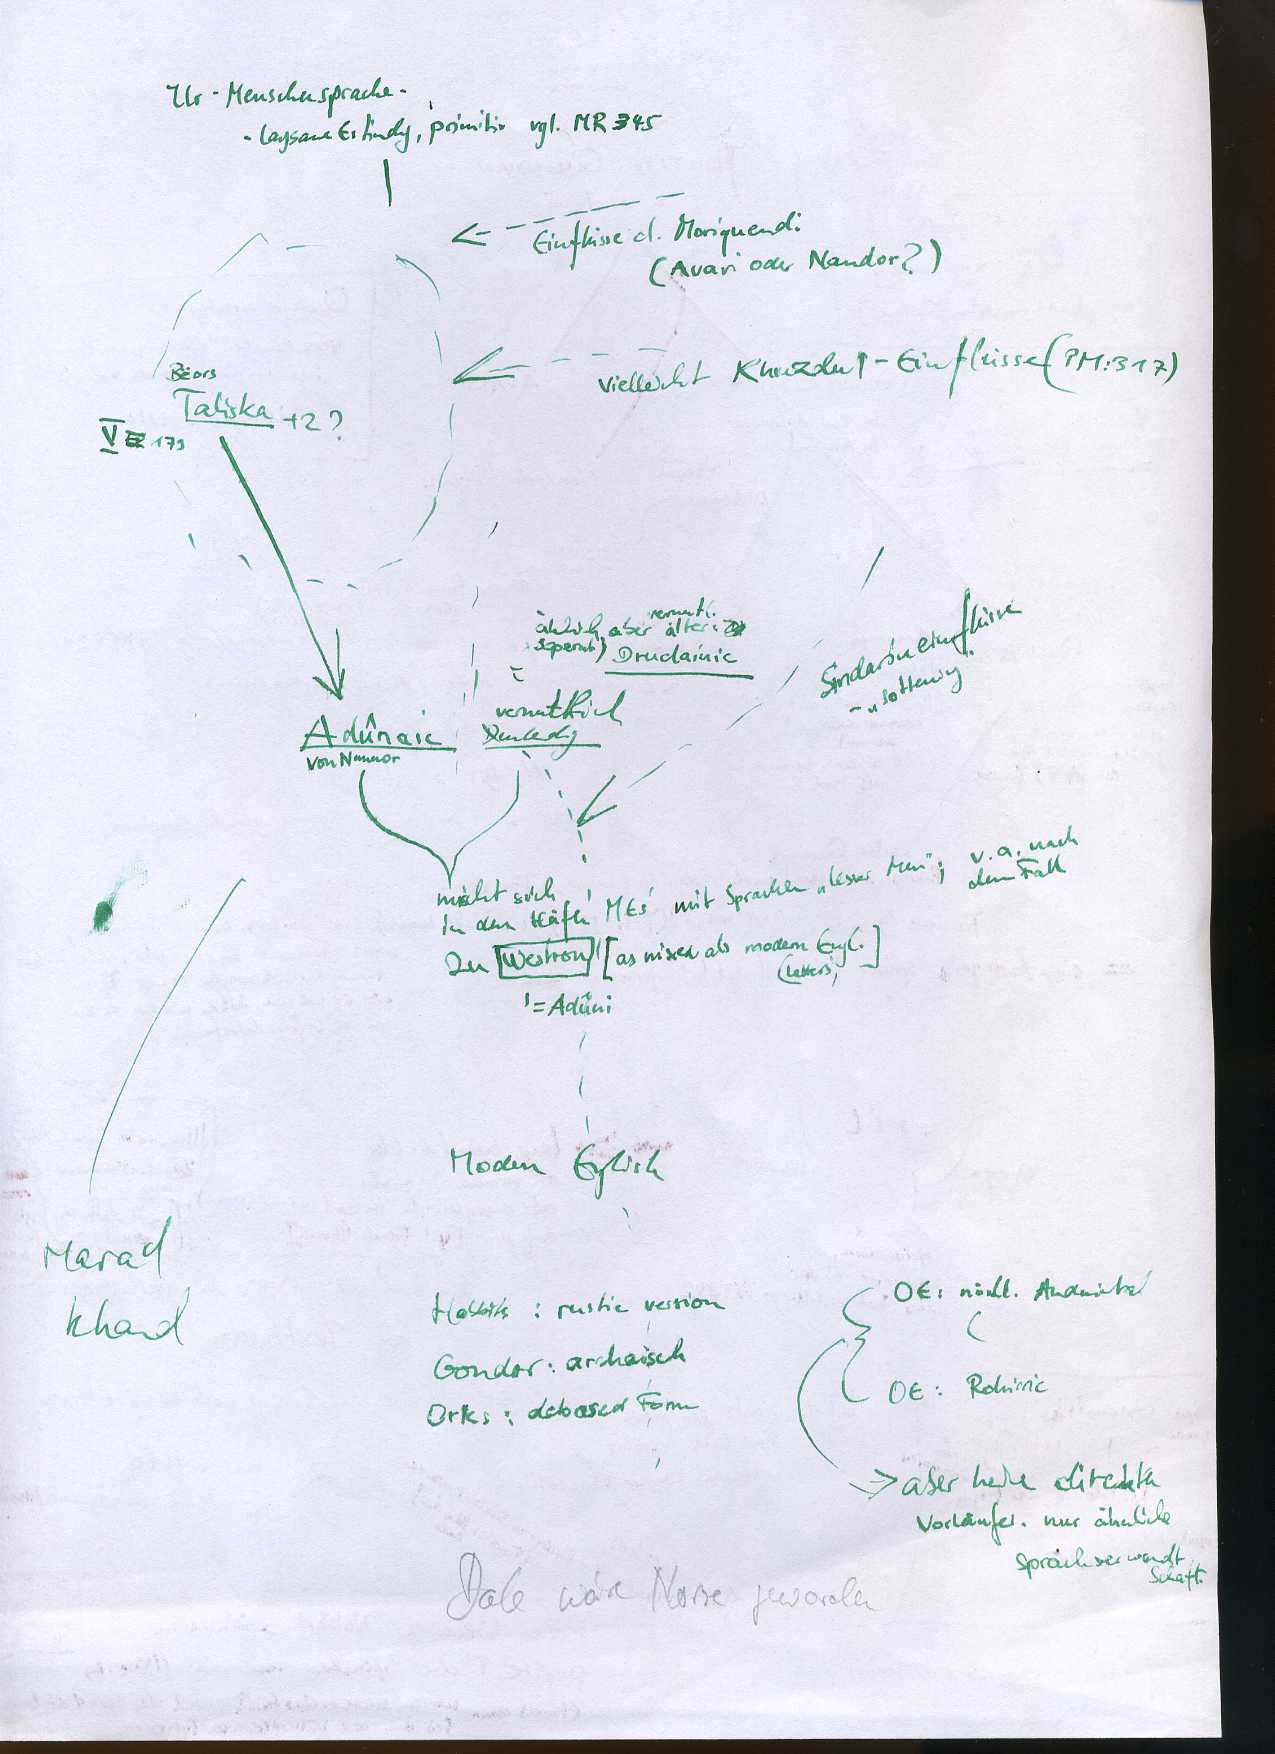 Ur-Menschensprache-
- langsame Erfindg, primitiv vgl. MR 345
Einflüsse d. Moriquendi
(Avari oder Nandor?)
vielleicht Khuzdul-Einflüsse (PM:317)
Bëors
Taliska +2?
V 179
vermutl.
ähnlich, aber älter:
separat) Drudainic
Sindarineinflüsse
Adûnaic
vermutlich
von Numenor
mischt sich
in den Häfn MEs mit Sprachen „lesser Men"; v.a. nach
dem Fall
zu Westron [as mixed als modern Engl.]
(Letters)
= Adûni
Modern English
Harad
Khand
Hobbits : rustic version
Gondor : archaisch
Orks : debased Form
OE: nördl. Anduintal
OE: Rohirric
aber keine direkten
Vorläufer. nur ähnliche
Sprachverwandt
schaft.
Dale wäre Norse geworden